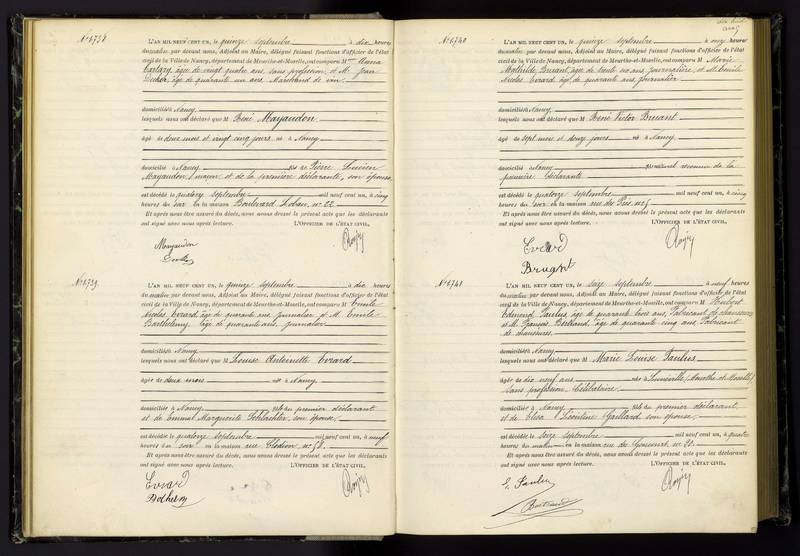 N° 1738
L'AN MIL NEUF CENT UN, le quinze septembre à dix heures
du matin par devant nous, Adjoint au Maire, délégué faisant fonctions d'officier de l'état
civil de la Ville de Nancy, département de Meurthe-et-Moselle, ont comparu M
âgée de vingt quatre ans, sans profession, et M. Jean
âgé de quarante un ans, Marchand de vin.
domiciliés à Nancy
lesquels nous ont déclaré que M René Mayaudon
âgé de deux mois et vingt cinq jours né à Nancy
domicilié à Nancy fils de Pierre Lucien
Mayaudon, majeur et de la première déclarante, son épouse
est décédé le quatorze septembre mil neuf cent un, à cinq
heures du soir en la maison Boulevard Lobau, n° 22
Et après nous être assuré du décès, nous avons dressé le présent acte que les déclarants
ont signé avec nous après lecture. L'OFFICIER DE L'ÉTAT CIVIL,
Mayaudon
N° 1739
L'AN MIL NEUF CENT UN, le quinze septembre à dix heures
du matin par devant nous, Adjoint au Maire, délégué faisant fonctions d'officier de l'état
civil de la Ville de Nancy, département de Meurthe-et-Moselle, ont comparu M Emile
Nicolas Evrard, âgé de quarante ans, journalier et M. Emile
Barthelemy, âgé de quarante ans, journalier
domiciliés à Nancy
lesquels nous ont déclaré que M Louise Antoinette Evrard
âgée de deux mois née à Nancy
domiciliée à Nancy fille du premier déclarant
et de Marguerite son épouse,
est décédée le quatorze septembre mil neuf cent un, à neuf
heures du soir en la maison rue Clodion, n°
Et après nous être assuré du décès, nous avons dressé le présent acte que les déclarants
ont signé avec nous après lecture. L'OFFICIER DE L'ÉTAT CIVIL,
Evrard
N° 1740
L'AN MIL NEUF CENT UN, le quinze septembre à onze heures
du matin par devant nous, Adjoint au Maire, délégué faisant fonctions d'officier de l'état
civil de la Ville de Nancy, département de Meurthe-et-Moselle, ont comparu M Marie
Mathilde Bruant, âgée de trente ans, journalière, et M. Emile
Nicolas Evrard, âgé de quarante ans, journalier
domiciliés à Nancy
lesquels nous ont déclaré que M René Victor Bruant
âgé de sept mois et douze jours né à Nancy,
domicilié à Nancy fils naturel reconnu de la
première déclarante
est décédé le quatorze septembre mil neuf cent un, à cinq
heures du soir en la maison rue des Prés n° 5
Et après nous être assuré du décès, nous avons dressé le présent acte que les déclarants
ont signé avec nous après lecture. L'OFFICIER DE L'ÉTAT CIVIL,
Evrard
Bruant
N° 1741
L'AN MIL NEUF CENT UN, le seize septembre à neuf heures
du matin par devant nous, Adjoint au Maire, délégué faisant fonctions d'officier de l'état
civil de la Ville de Nancy, département de Meurthe-et-Moselle, ont comparu M Hubert
Edmond Paulus, âgé de quarante trois ans, Fabricant de chaussures
et M. François Bertrand, âgé de quarante cinq ans, Fabricant
de chaussures.
domiciliés à Nancy
lesquels nous ont déclaré que M Marie Louise Paulus
âgée de dix neuf ans née à Lunéville (Meurthe et Moselle)
sans profession, Célibataire
domiciliée à Nancy fille du premier déclarant
et de Elisa Léontine Gaillard son épouse,
est décédée le seize septembre mil neuf cent un, à quatre
heures du matin en la maison rue de n° 22.
Et après nous être assuré du décès, nous avons dressé le présent acte que les déclarants
ont signé avec nous après lecture. L'OFFICIER DE L'ÉTAT CIVIL,
E. Paulus
Bertrand